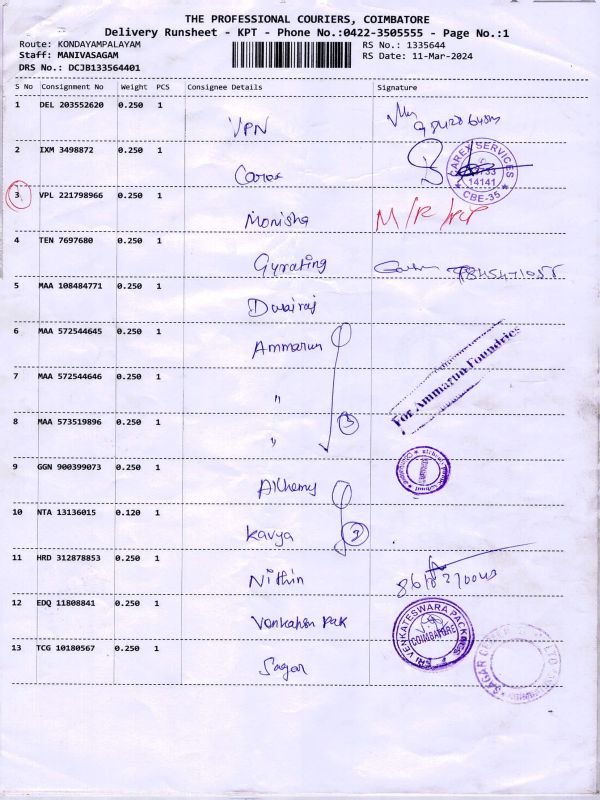 THE PROFESSIONAL COURIERS, COIMBATORE
Delivery Runsheet - KPT - Phone No.:0422-3505555 - Page No.:1
Route: KONDAYAMPALAYAM RS No.: 1335644
Staff: MANIVASAGAM RS Date: 11-Mar-2024
DRS No.: DCJB133564401
S No Consignment No Weight PCS Consignee Details Signature
1 DEL 203552620 0.250 1 VPN
2 IXM 3498872 0.250 1 Carex
CAREX SERVICES
14141
CBE-35
3 VPL 221798966 0.250 1 Monisha
4 TEN 7697680 0.250 1 Gyrating
5 MAA 108484771 0.250 1 Dwairaj
6 MAA 572544645 0.250 1 Ammarun
For Ammarun Foundries
7 MAA 572544646 0.250 1 "
8 MAA 573519896 0.250 1 " 3
9 GGN 900399073 0.250 1 Alchemy
10 NTA 13136015 0.120 1 Kavya 2
11 HRD 312878853 0.250 1 Nithin
12 EDQ 11808841 0.250 1 Venkatesh Pak
SRI VENKATESWARA PACKAGES
COIMBATORE
13 TCG 10180567 0.250 1 Sagar